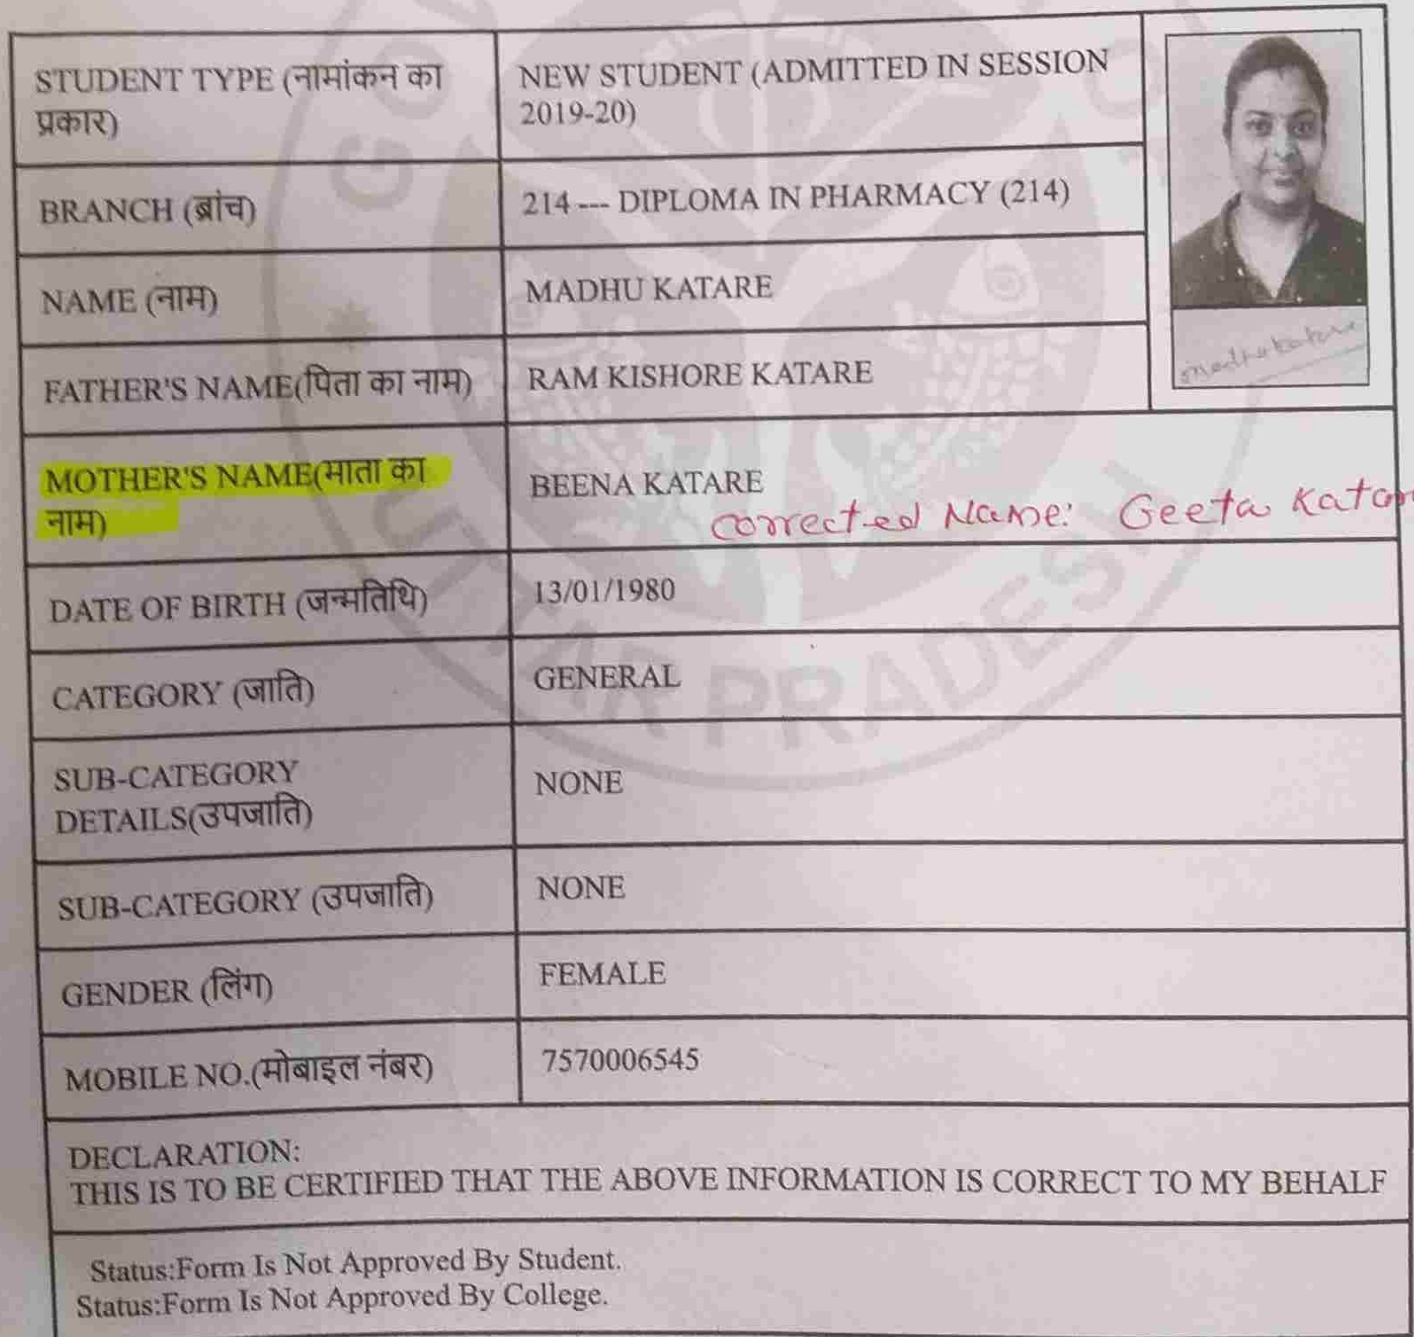 STUDENT TYPE (नामांकन का
प्रकार)
NEW STUDENT (ADMITTED IN SESSION
2019-20)
BRANCH (ब्रांच)
214 --- DIPLOMA IN PHARMACY (214)
NAME (नाम)
MADHU KATARE
FATHER'S NAME(पिता का नाम)
RAM KISHORE KATARE
madhukatare
MOTHER'S NAME(माता का
नाम)
BEENA KATARE
corrected Name: Geeta
DATE OF BIRTH (जन्मतिथि)
13/01/1980
CATEGORY (जाति)
GENERAL
SUB-CATEGORY
DETAILS(उपजाति)
NONE
SUB-CATEGORY (उपजाति)
NONE
GENDER (लिंग)
FEMALE
MOBILE NO.(मोबाइल नंबर)
7570006545
DECLARATION:
THIS IS TO BE CERTIFIED THAT THE ABOVE INFORMATION IS CORRECT TO MY BEHALF
Status:Form Is Not Approved By Student.
Status:Form Is Not Approved By College.
UTTAR PRADESH